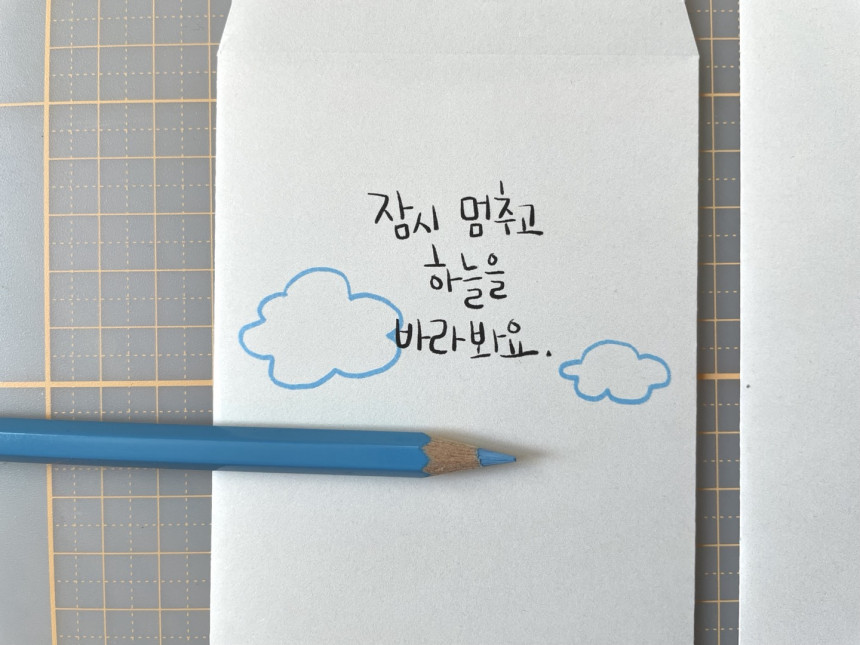 잠시 멈추고
하늘을
바라봐요.